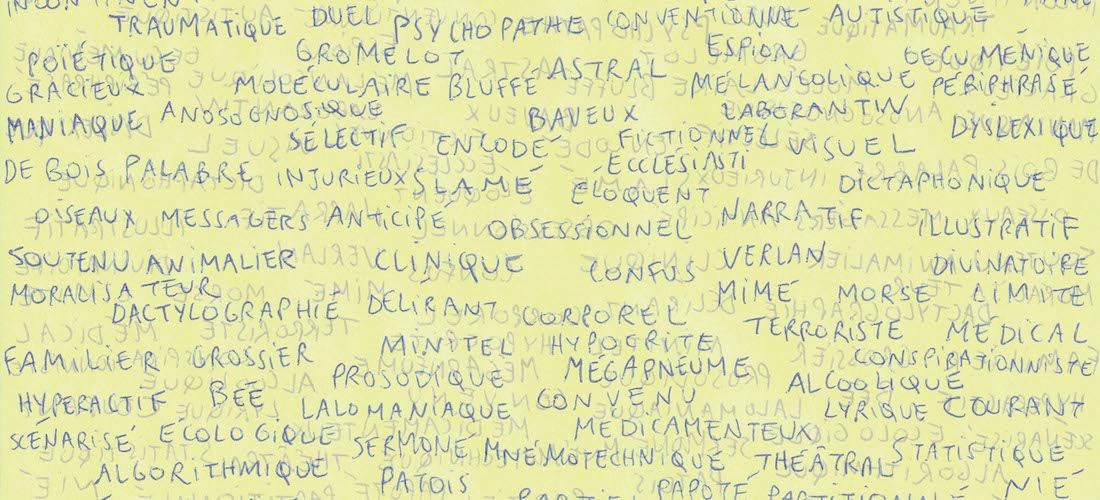 TRAUMATIQUE DUEL PSYCHOPATHE CONVENTIONNÉ AUTISTIQUE
POÏÉTIQUE GROMELOT ESPION OECUMÉNIQUE
GRACIEUX MOLÉCULAIRE BLUFFÉ ASTRAL MÉLANCOLIQUE PÉRIPHRASÉ
MANIAQUE ANOSOGNOSIQUE BAVEUX LABORANTIN DYSLEXIQUE
SÉLECTIF ENCODÉ FICTIONNEL VISUEL
DE BOIS PALABRE INJURIEUX SLAMÉ ECCLÉSIASTI ÉLOQUENT DICTAPHONIQUE
OISEAUX MESSAGERS ANTICIPÉ OBSESSIONNEL NARRATIF ILLUSTRATIF
SOUTENU ANIMALIER CLINIQUE CONFUS VERLAN DIVINATOIRE
MORALISATEUR MIMÉ MORSE LIMITE
DACTYLOGRAPHIÉ DÉLIRANT CORPOREL TERRORISTE MÉDICAL
FAMILIER GROSSIER MINITEL HYPOCRITE CONSPIRATIONNISTE
PROSODIQUE MÉGAPNEUME ALCOOLIQUE
HYPERACTIF BÉÉ LALOMANIAQUE CONVENU LYRIQUE COURANT
SCÉNARISÉ ÉCOLOGIQUE SERMONÉ MNÉMOTECHNIQUE MÉDICAMENTEUX STATISTIQUE
ALGORITHMIQUE PATOIS THÉATRAL
PAPOTÉ NIÉ